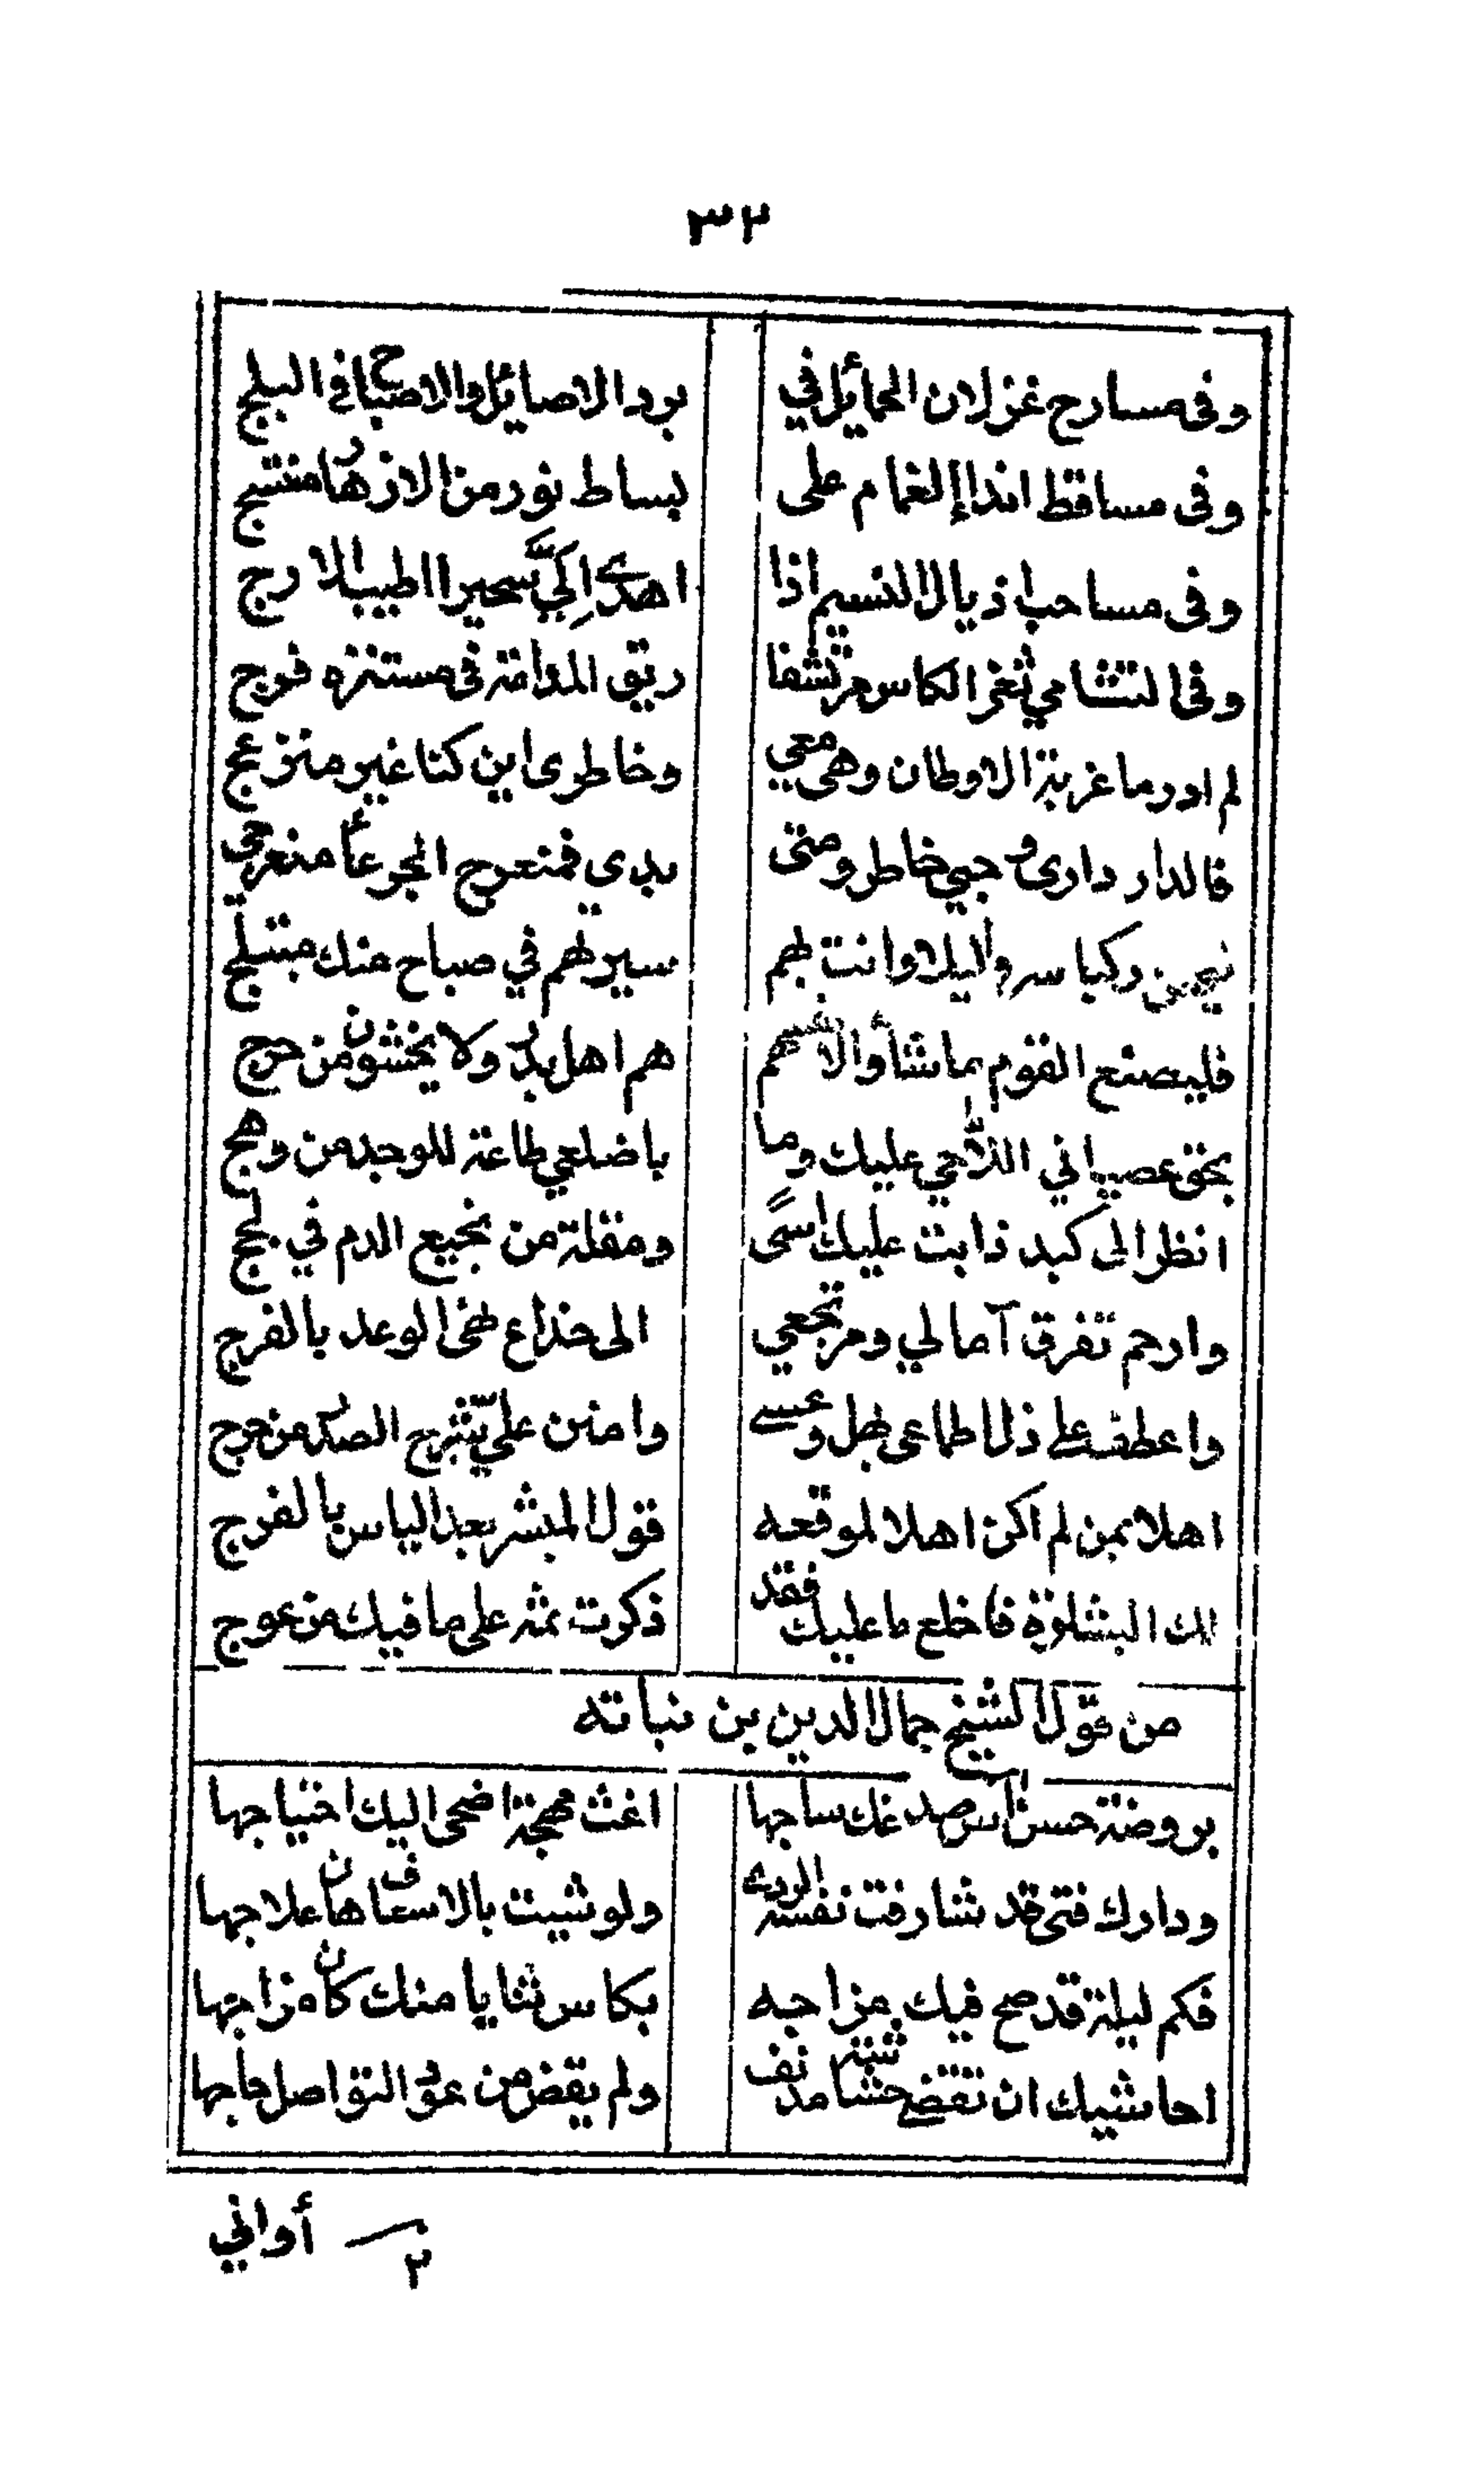 ٣٢
وفى مسارح غزلان الخمائل في برد الاصايل والاصباح في البلج
وفى مساقط انداإ الغمام على بساط نور من الازهار منتسج
وفى مساحب اذيال النسيم اذا اهدى اِليَّ سحيرا اطيب الارج
وفى التثامي ثغر الكاس مرتشفا ريق المدامة فى مستنزه فرج
لم ادر ما غربة الاوطان وهى معي وخاطرى اين كنا غير منزعج
فالدار دارى وحبي خاطر ومتى بدى فمنعرج الجرعأ منعرجي
ليهن ركبا سروا ليلا وانت بهم سيرهم في صباح منك منبلج
فليصنع القوم ما شأوا لانفسهم هم اهل بدر ولا يخشون من حرج
بحق عصياني اللاحي عليك وما باضلعي طاعة للوجد من وهج
انظر الى كبد ذابت عليك اسًى ومقلة من نجيع الدم في لجج
وارحم تفرق آمالي ومرتجعي الى خداع تمنى الوعد بالفرج
واعطف على ذل اطماعى بهل وعسى وامنن عليّ بشرح الصدر من حرج
اهلا بمن لم اكن اهلا لموقعه قول المبشر بعد الياس بالفرج
لك البشارة فاخلع ما عليك فقد ذكرت ثم على ما فيك من عوج
من قول الشيخ جمال الدين بن نباته
بروضة حسن آس صدغك ساجها اغث مهجة اضحى اليك احتياجها
ودارك فتى قد شارفت نفسه الردى ولو شيت بالاسعاف هان علاجها
فكم ليلة قد صح فيك مزاجه بكاس ثنايا منك كان مزاجها
احاشيك ان تقضى حشاشة مدنف ولم يقض من عود التواصل حاجها
٢ أواني